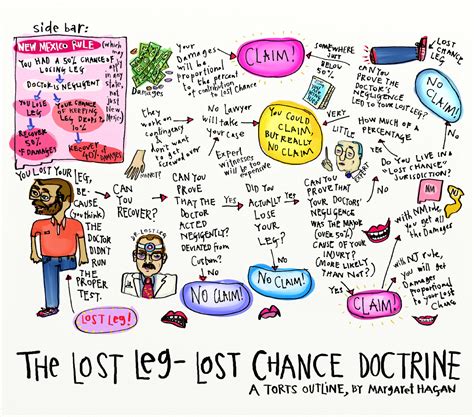 side bar:
NEW MEXICO RULE
YOU HAD A 50% CHANCE OF
LOSING LEG
DOCTOR IS NEGLIGENT
YOU LOSE
LEG
RECOVER
50%
OF DAMAGES
YOUR CHANCE
OF KEEPING
LEG DROPS TO
10%
RECOVER
40% OF DAMAGES
(which
may
in any
stole
YOU LOST YOUR LEG,
BE-
CAUSE
(you think)
THE
DOCTOR
DIDN'T
RUN
THE
PROPER
TEST.
LOST LEG!
CAN
YOU
RECOVER?
DR. LOST LEG
CAN YOU
PROVE
THAT THE
DOCTOR
ACTED
NEGLIGENTLY?
DEVIATED from
Custom?
NO CLAIM!
DID YOU
ACTUALLY
LOSE
YOUR
LEG?
NO CLAIM!
Yes
CAN YOU
PROVE THAT
YOUR DOCTORS'
NEGLIGENCE
WAS THE MAJOR
(over 50%)
CAUSE OF YOUR
INJURY?
(MORE LIKELY
THAN NOT?)
CLAIM!
Your
Damages
will be
proportional
to the percent
of contribution
to Lost Chance
CLAIM!
SOMEWHERE
JUST
BELOW
50%
VERY
LITTLE
YOU COULD
CLAIM,
BUT REALLY
NO CLAIM
No lawyer
will take
Your case
They work on
contingency &
don't want
to lose
Damages
Expert
Witnesses
will be
too expensive
EXPERT
LOST
CHANCE
LEG
NO
CLAIM!
CAN YOU
PROVE THE
DOCTOR'S
NEGLIGENCE
LED TO YOUR LOST LEG?
HOW MUCH OF A
PERCENTAGE
DO YOU LIVE IN A
"LOST CHANCE"
JURISDICTION?
NM
with NM rule
you get all
the Damages
will NJ rule,
you will get
Damages
proportional
to your Lost
Chance
THE LOST LEG - LOST CHANCE DOCTRINE
A TORTS OUTLINE, BY MARGARET HAGAN